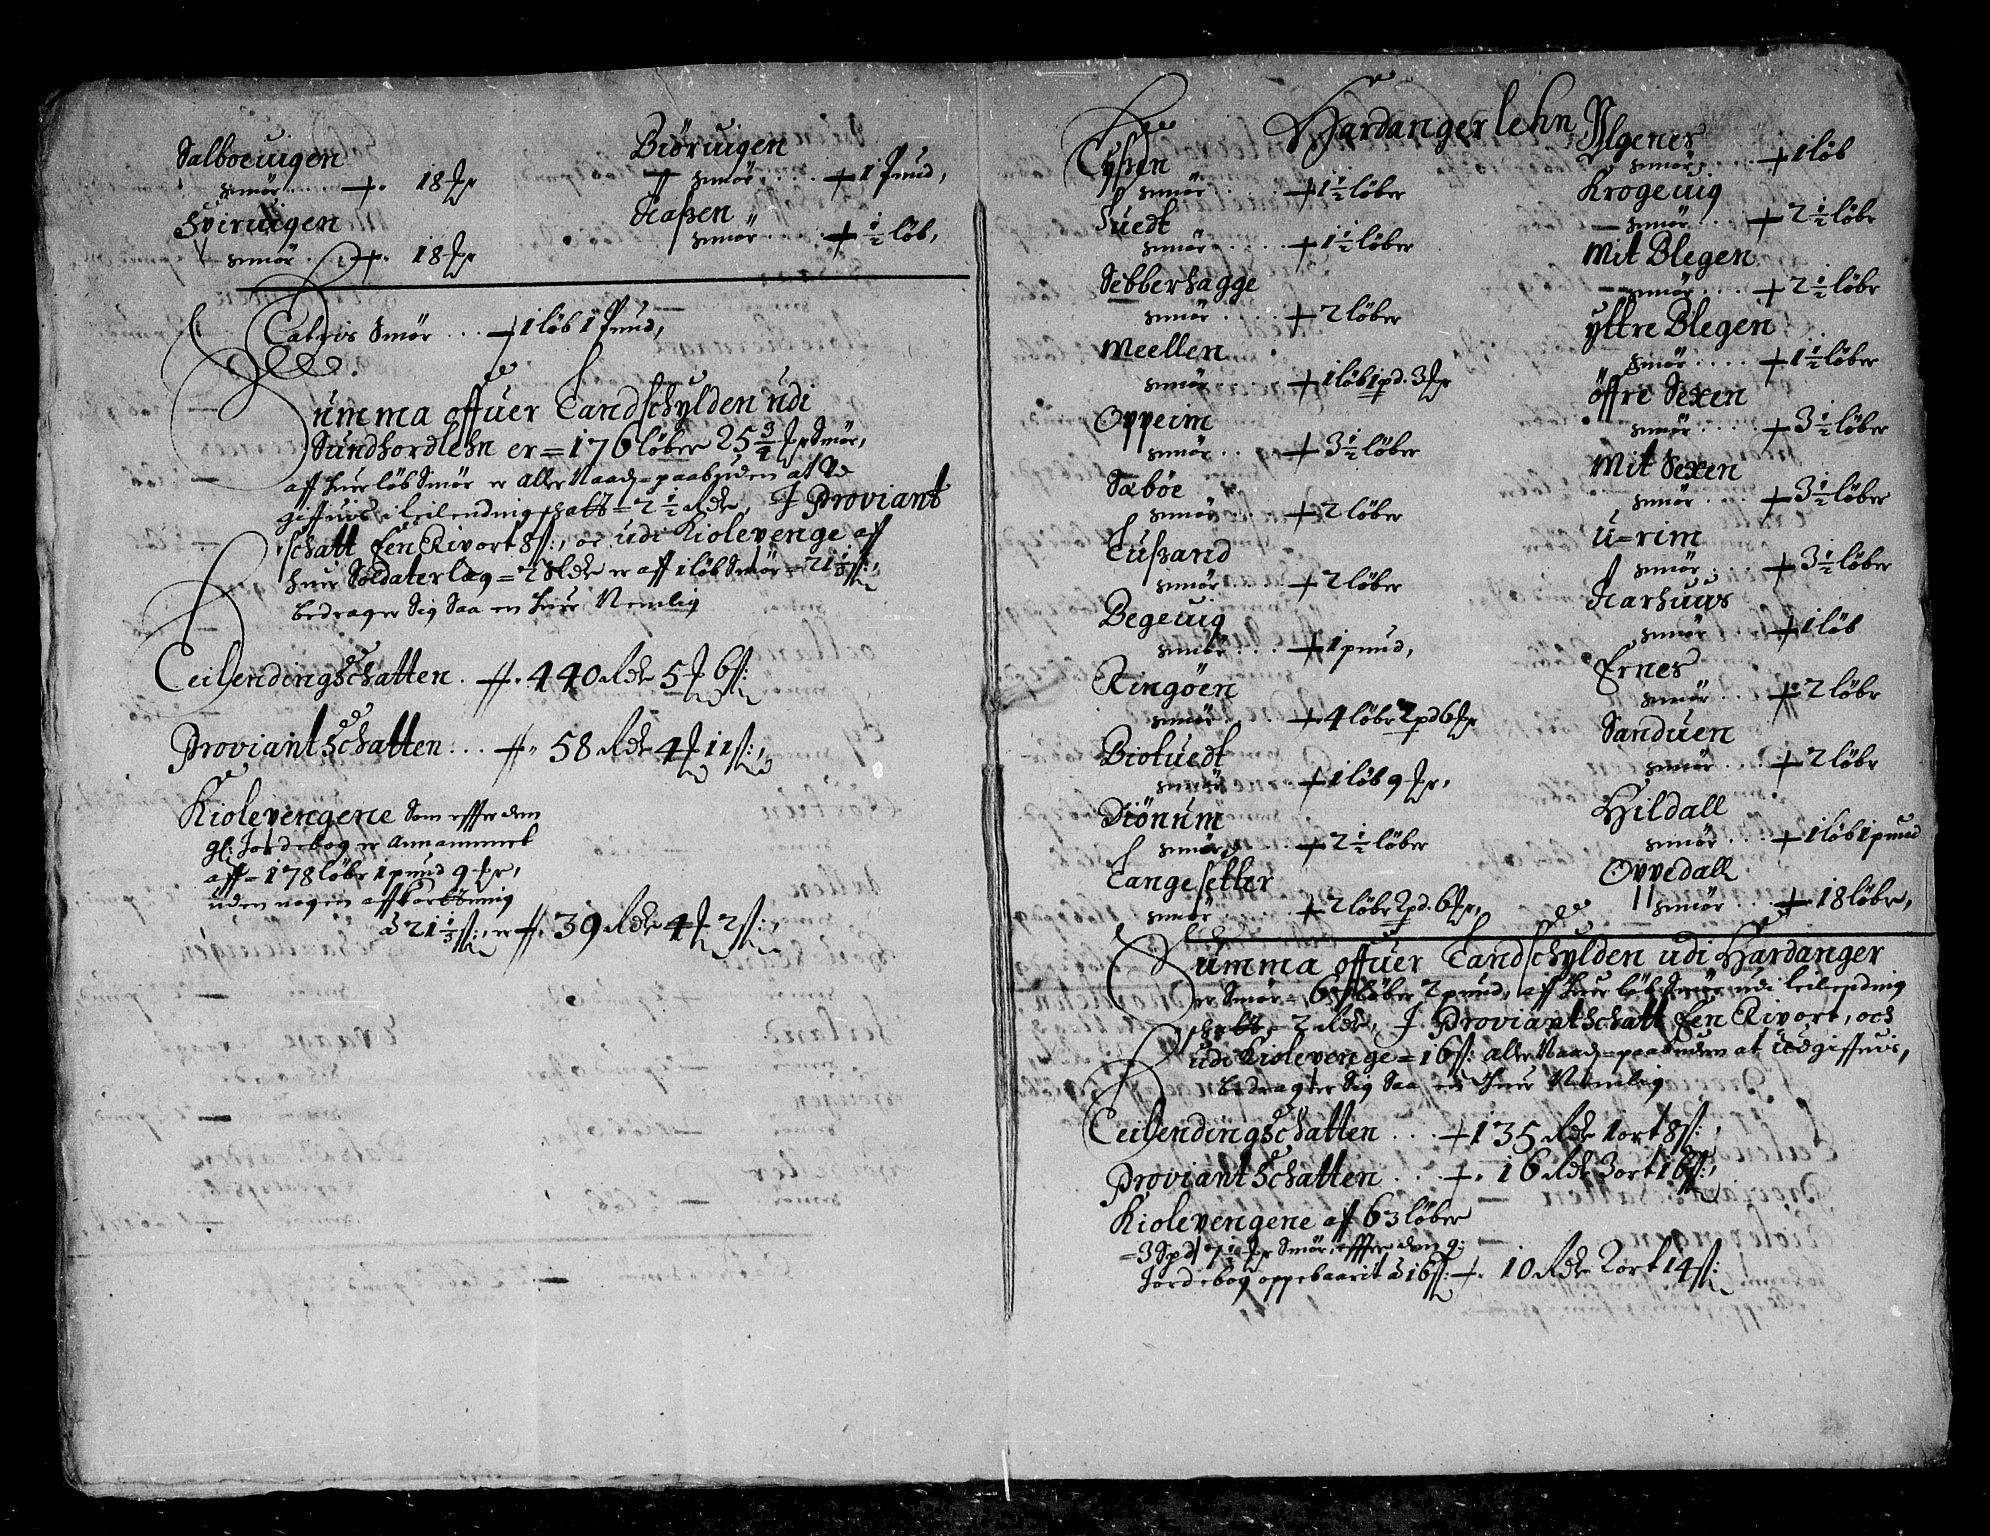 Salboeuigen
smör . . . . + 18 ℔r
Huiruigen
smör . . + 18 ℔r
Biöruigen
smör . . . . + 1 Pund,
Haßen
smör . . . . + ½ löb,
Latris Smör . . . + 1 löb 1 Pund,
Summa offuer Landschylden udi
Sundhordlehn er = 176 löber 25 ¾ ℔r Smör,
aff huer löb Smör er aller Naad = paabuden at Ud
giffuis i leilendingschatt = 2 ½ Rdr, I Proviant
schatt Een Rixort 8 ß:, oc udi Kiolepenge aff
huer Soldaterlæg = 2 Rdr er aff 1 löb Smör = 21 ⅓ ß:,
bedrager Sig Saa en huer Nemlig
Leilendingschatten . + . 440 Rdr 5 ℔ 6 ß:
Proviant Schatten . . . + . 58 Rdr 4 ℔ 11 ß:,
Kiolepengene Som effter den
gl: Jordebog er Annammet
aff = 178 löbr 1 pund 9 ℔r,
uden nogen affkortning
à 21 ⅓ ß:, er + . 39 Rdr 4 ℔ 2 ß:,
Hardanger lehn
Lyßen
smör . . + 1 ½ löber
Tuedt
smör . . . . + 1 ½ löber
Sebberhagge
smör . . . . + 2 löber
Meellen
smör . . . . + 1 löb 1 pd. 3 ℔r
Oppeim
smör . . + 3 ½ löber
Sæböe
smör . . . + 2 löber
Lußand
smör . . . + 2 löber
Begeuig
smör . . . + 1 pund,
Ringöen
smör . . . + 4 löbr 2 pd 6 ℔r
Biotuedt
smör . . . + 1 löb 9 ℔r,
Diönum
smör . . . + 2 ½ löber
Langesetter
smör . . . . + 2 löbr 2 pd. 6 ℔r,
Ylgenes
smör . . . . + 1 löb
Krogeuig
smör . . . + 2 ½ löbr
Mit Blegen
smör . . . . + 2 ½ löbr
yttre Blegen
smör . . . . + 1 ½ löber
öffre Sexen
smör . . . . + 3 ½ löber
Mit Sexen
smör . . . . + 3 ½ löber
U=rim
smör . . . + 3 ½ löber
Aarhuus
smör . . . + 1 löb
Ernes
smör . . . + 2 löbr
Sanduen
smör . . . + 2 löbr
Hildall
smör . . . + 1 löb 1 pund
Oppedall
smör . . . + . 18 löbr,
Summa offuer Landschylden udi Hardanger
er Smör = 67 löber 2 pund, aff huer löb Smör udi leilending
schatt = 2 Rdr, I Proviantschatt Een Rixort, och
udi Kiolepenge = 16 ß: aller Naad = paabuden at Udgiffuis,
bedrager Sig Saa en huer Nemlig
Leilendingschatten . . . + 135 Rdr 1 ort 8 ß:,
Proviant Schatten . . . + . 16 Rdr 3 ort 16 ß:,
Kiolepengene aff 63 löber
= 3 Spd 7 ½ ℔r Smör, effter den gl:
Jordebog oppebaarit à 16 ß: + . 10 Rdr 2 ort 14 ß: